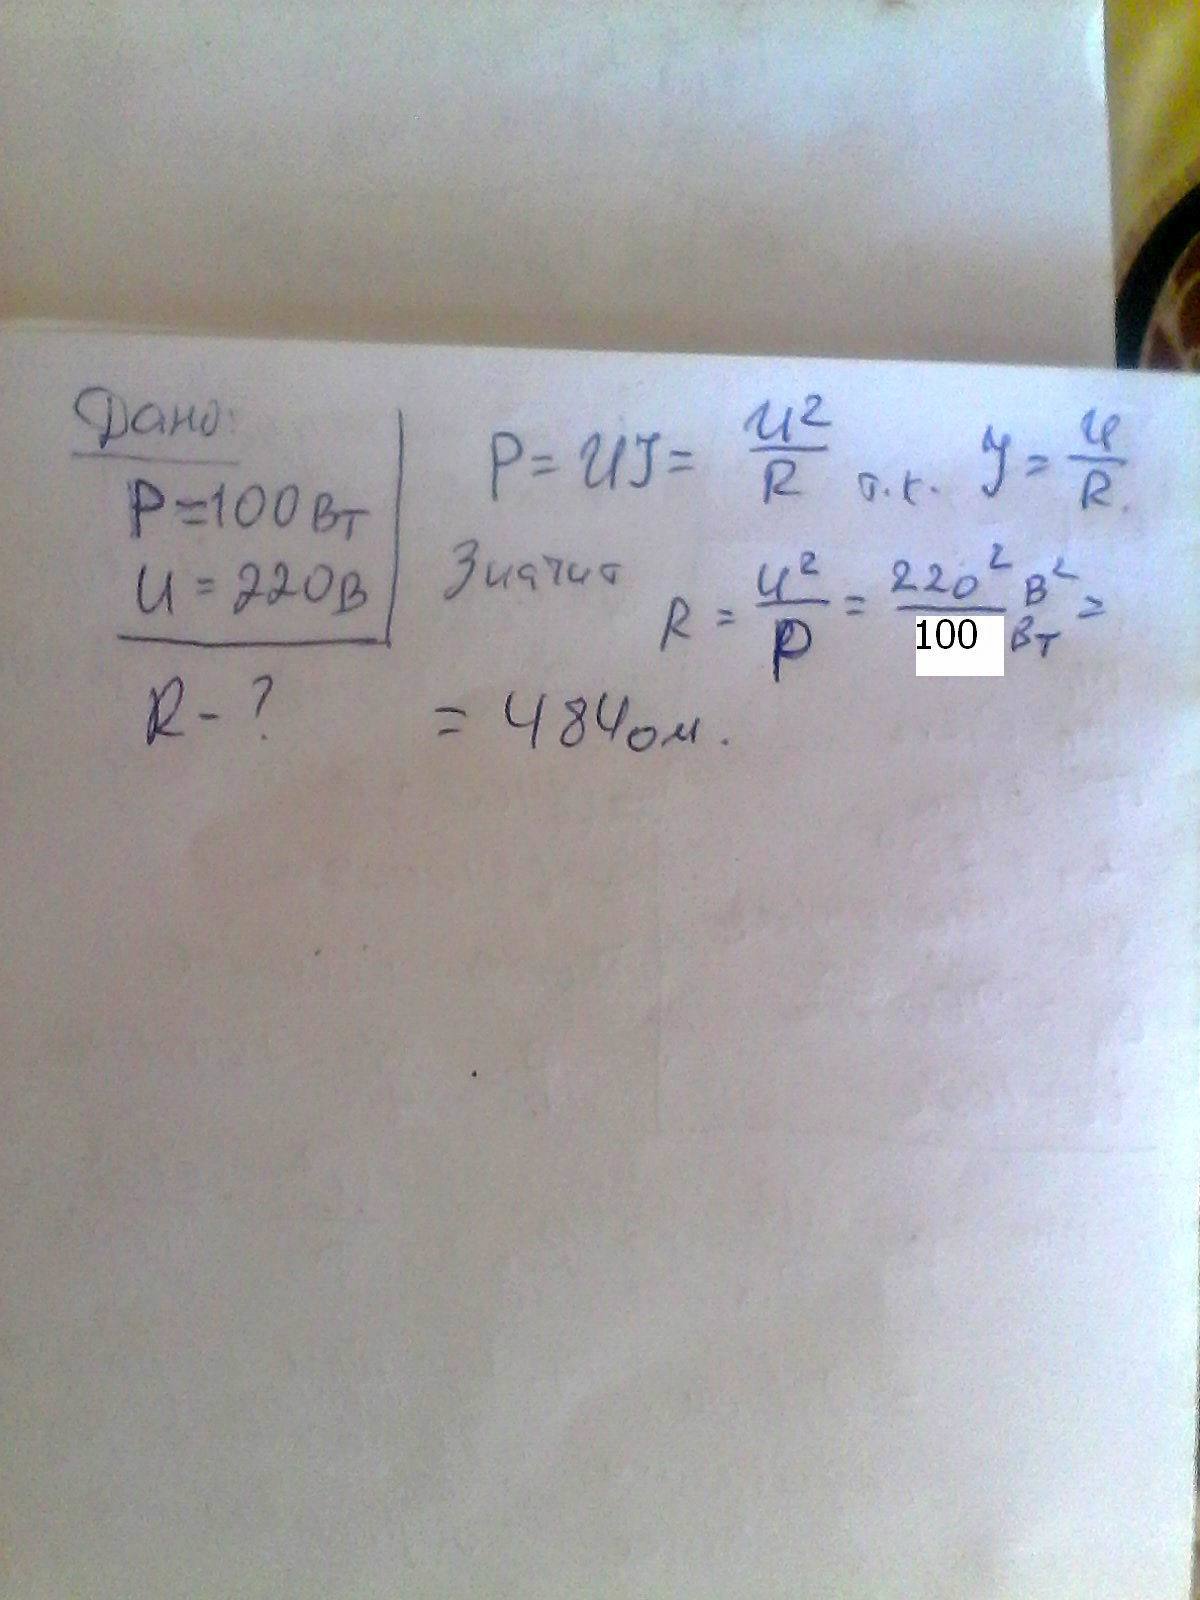 Дано:
P=100Вт
U = 220В
R - ?
P = UJ = U²/R т.к. J = U/R.
Значит
R = U²/P = 220²/100 В²/Вт =
= 484 ом.